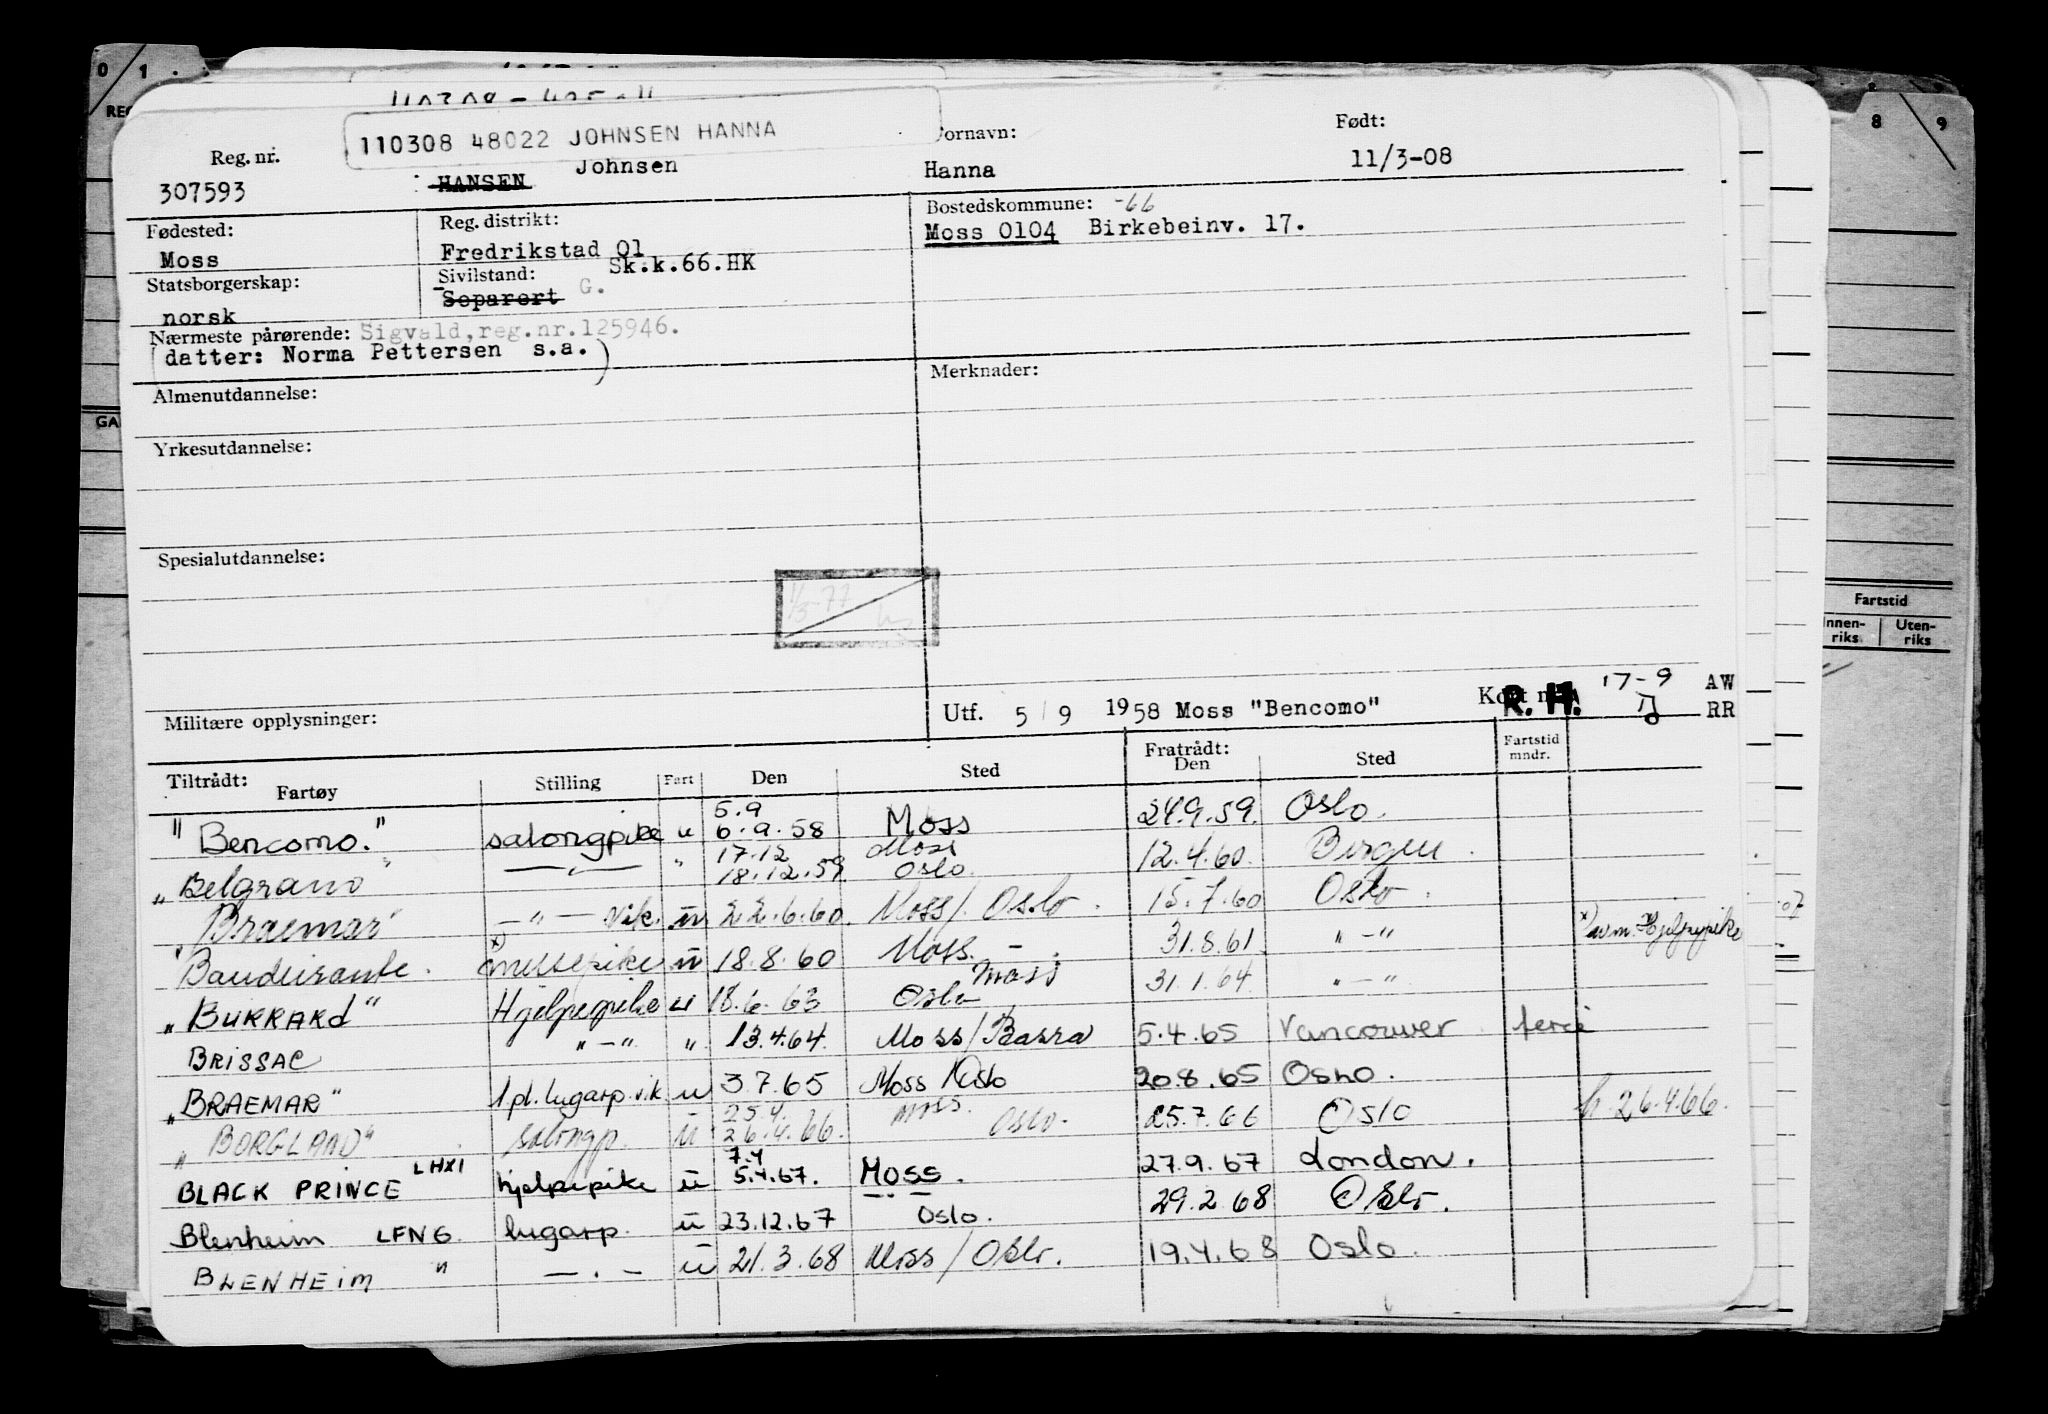 0 1
REG
110308 48022 JOHNSEN HANNA
Fornavn:
Født:
8 9
Reg. nr.
307593
HANSEN Johnsen
Hanna
11/3-08
Fødested:
Moss
Reg. distrikt:
Fredrikstad 01
Bostedskommune: -66
Moss 0104 Birkebeinv. 17.
Statsborgerskap:
norsk
Sivilstand: Sk.k.66.HK
Separert G.
Nærmeste pårørende: Sigvald,reg.nr.125946.
(datter: Norma Pettersen s.a.)
Almenutdannelse:
Merknader:
GA
Yrkesutdannelse:
Spesialutdannelse:
1/3-77
Fartstid
Innen-riks Uten-riks
Militære opplysninger:
Utf. 5/9 1958 Moss "Bencomo" R. H. 17-9 AW
RR
Tiltrådt: Fartøy Stilling Fart Den Sted Fratrådt: Den Sted Fartstid mndr.
"Bencomo." salongpike u 5.9 6.9.58 Moss 24.9.59. Oslo.
"Belgrano" —"— " 17.12 18.12.59 Moss Oslo. 12.4.60. Bergen.
"Braemar" —"— vik. u 22.6.60. Moss/Oslo. 15.7.60 Oslo.
Bandeirante. x) messepike u 18.8.60 Moss. 31.8.61 "-" x) av m. Hjelpepike
"BURRARd" Hjelpepike u 18.6.63 Oslo Moss 31.1.64. "-"
BRISSAC "-" " 13.4.64. Moss/Basra 5.4.65 Vancouver ferie
"BRAEMAR" 1 pl. lugarp.vik. u 3.7.65 Moss/Oslo 20.8.65 Oslo.
"BORGLAND" salongp. u 25.4. 26.4.66. Moss. Oslo. 25.7.66 Oslo h. 26.4.66.
BLACK PRINCE LHXI hjelpepike u 7.4 5.4.67. Moss. 27.9.67 London.
Blenheim LFNG lugarp. u 23.12.67 Oslo. 29.2.68 Oslo.
BLENHEIM " —.— u 21.3.68 Moss/Oslo. 19.4.68 Oslo.